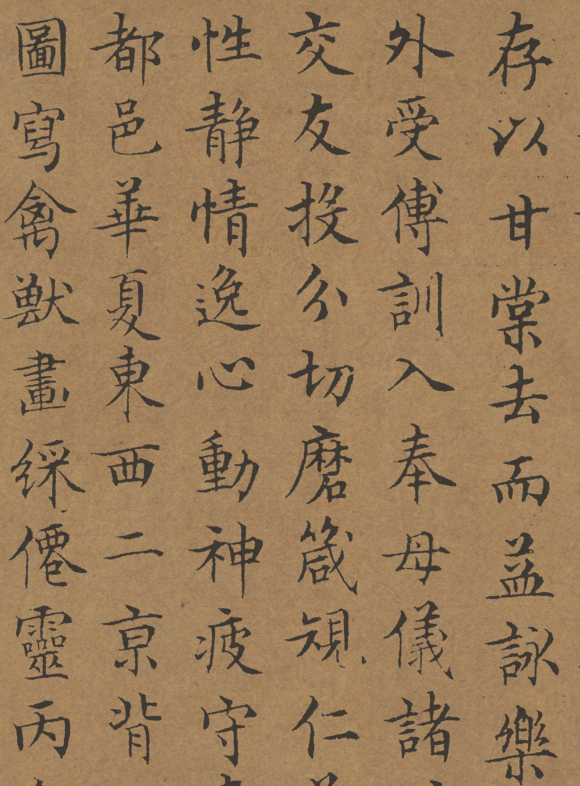 存以甘棠去而益詠樂
外受傅訓入奉母儀諸
交友投分切磨箴規仁
性静情逸心動神疲守
都邑華夏東西二京背
圖寫禽獸畫綵僊靈丙